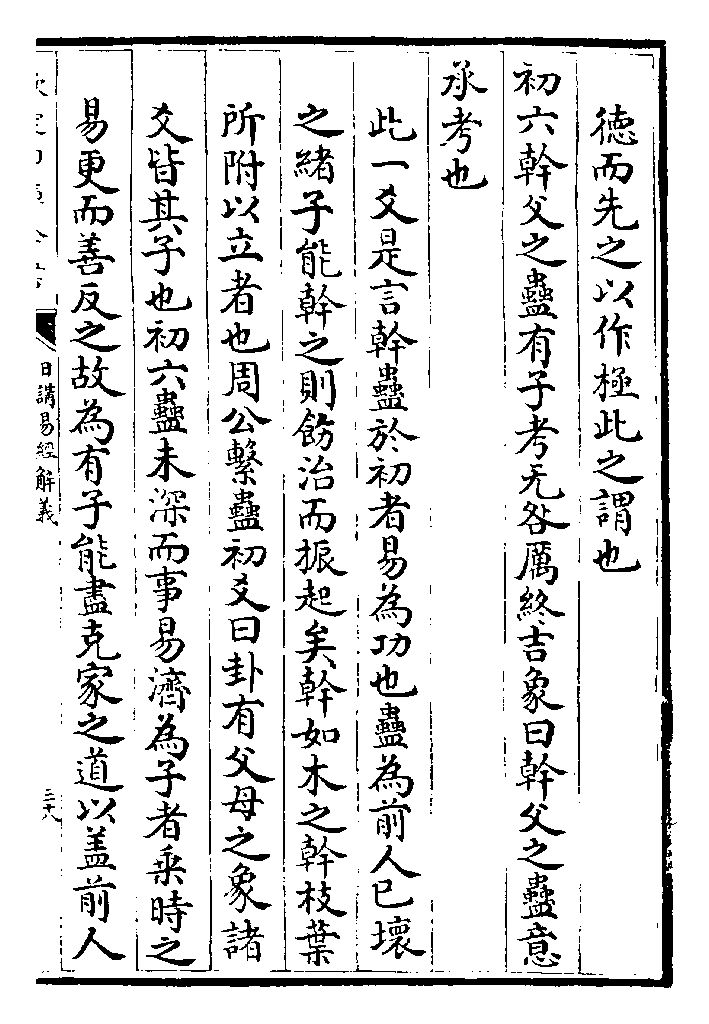 德而先之以作極此之謂也
初六幹父之蠱有子考无咎厲終吉象曰幹父之蠱意
承考也
此一爻是言幹蠱於初者易為功也蠱為前人已壞
之緒子能幹之則飭治而振起矣幹如木之幹枝葉
所附以立者也周公繫蠱初爻曰卦有父母之象諸
爻皆其子也初六蠱未深而事易濟為子者乗時之
易更而善反之故為有子能盡克家之道以盖前人
日講易經解義
三十八